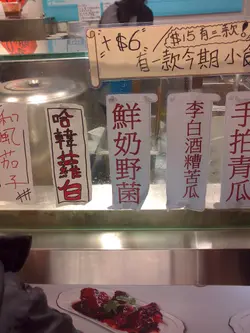 +$6
有
$15有三款
款今期小
和風茄子
哈韓蘿白
鮮奶野菌
李白酒糟苦瓜
手拍青瓜